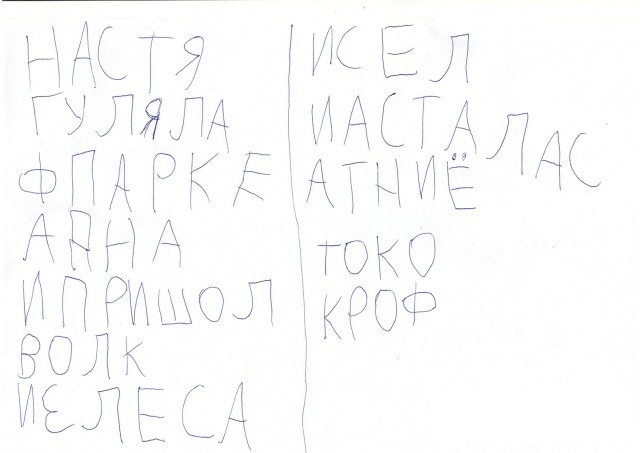 НАСТЯ
ГУЛЯЛА
ФПАРКЕ
АДНА
И ПРИШОЛ
ВОЛК
ИЗЛЕСА
ИСЕЛ
ИАСТАЛАС
АТНИЁ
ТОКО
КРОФ